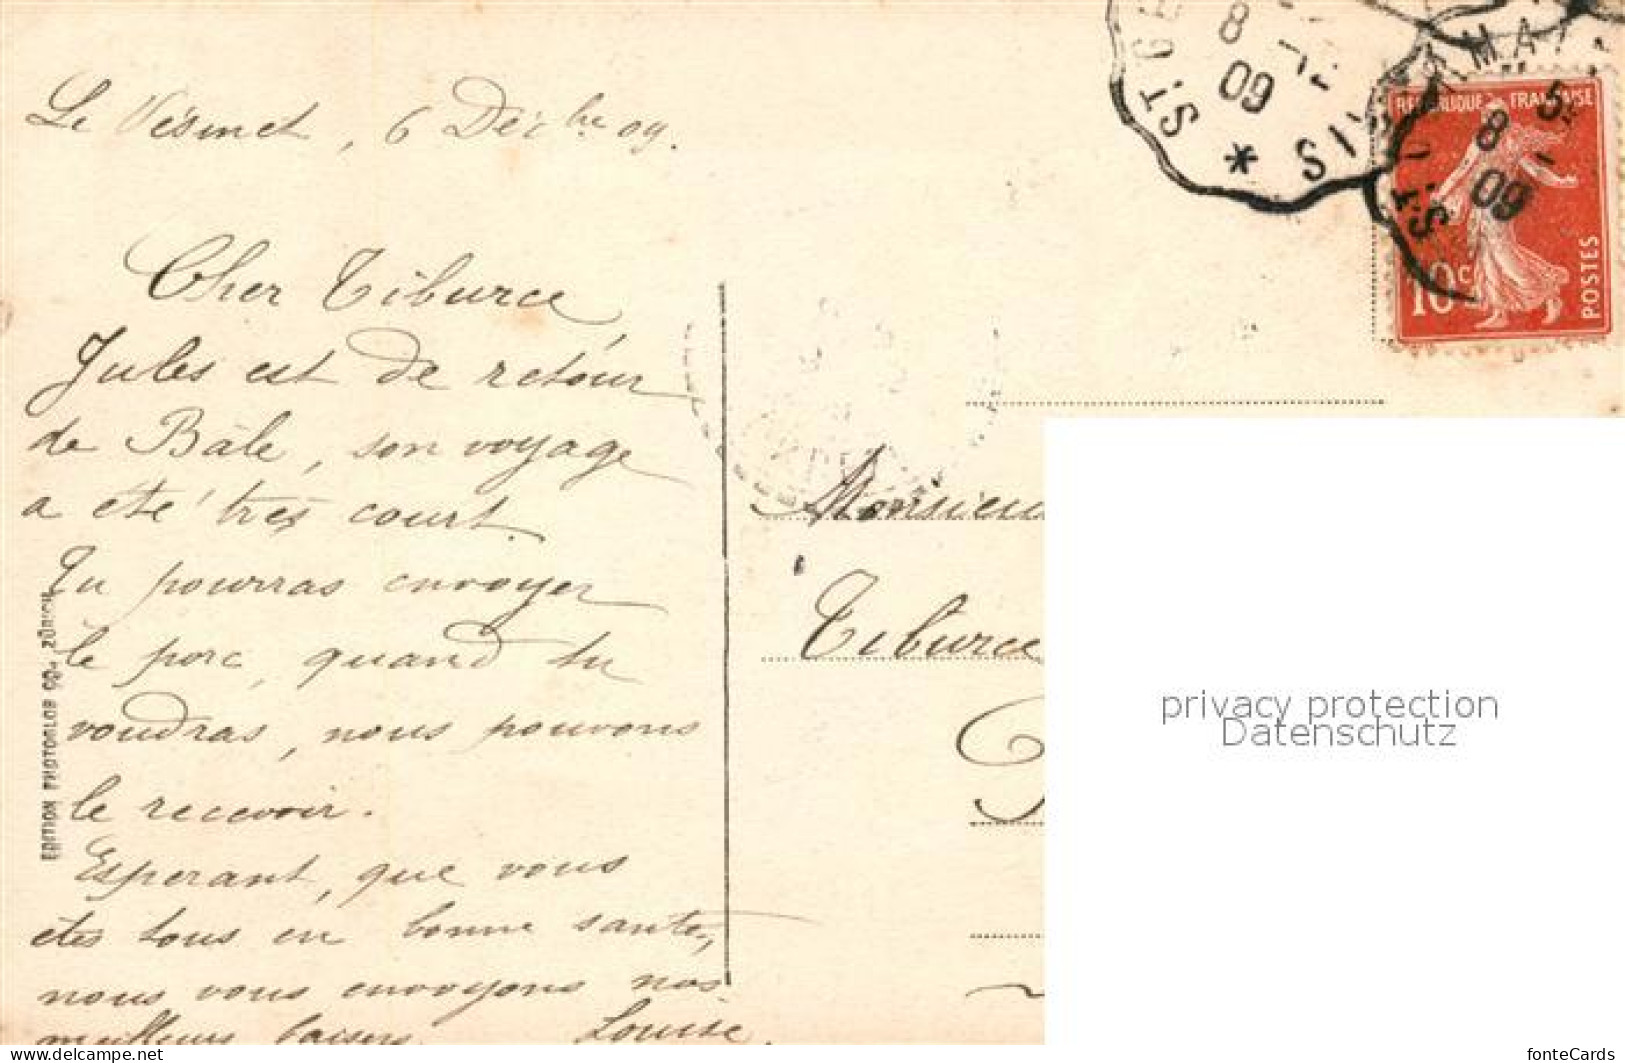 Le Vésinet, 6 Déc bre 09.
Cher Tiburce
Jules est de retour
de Bâle, son voyage
a été très court.
Tu pourras envoyer
le porc, quand tu
voudras, nous pouvons
le recevoir.
Espérant, que vous
êtes tous en bonne santé,
nous vous envoyons nos
meilleurs baisers. Louise.
EDITION PHOTOGLOB CO., ZÜRICH
ST GE
8
09
*
REPUBLIQUE FRANÇAISE
10 c
POSTES
8
09
Monsieu
Tiburce
privacy protection
Datenschutz
www.delcampe.net
fonteCards